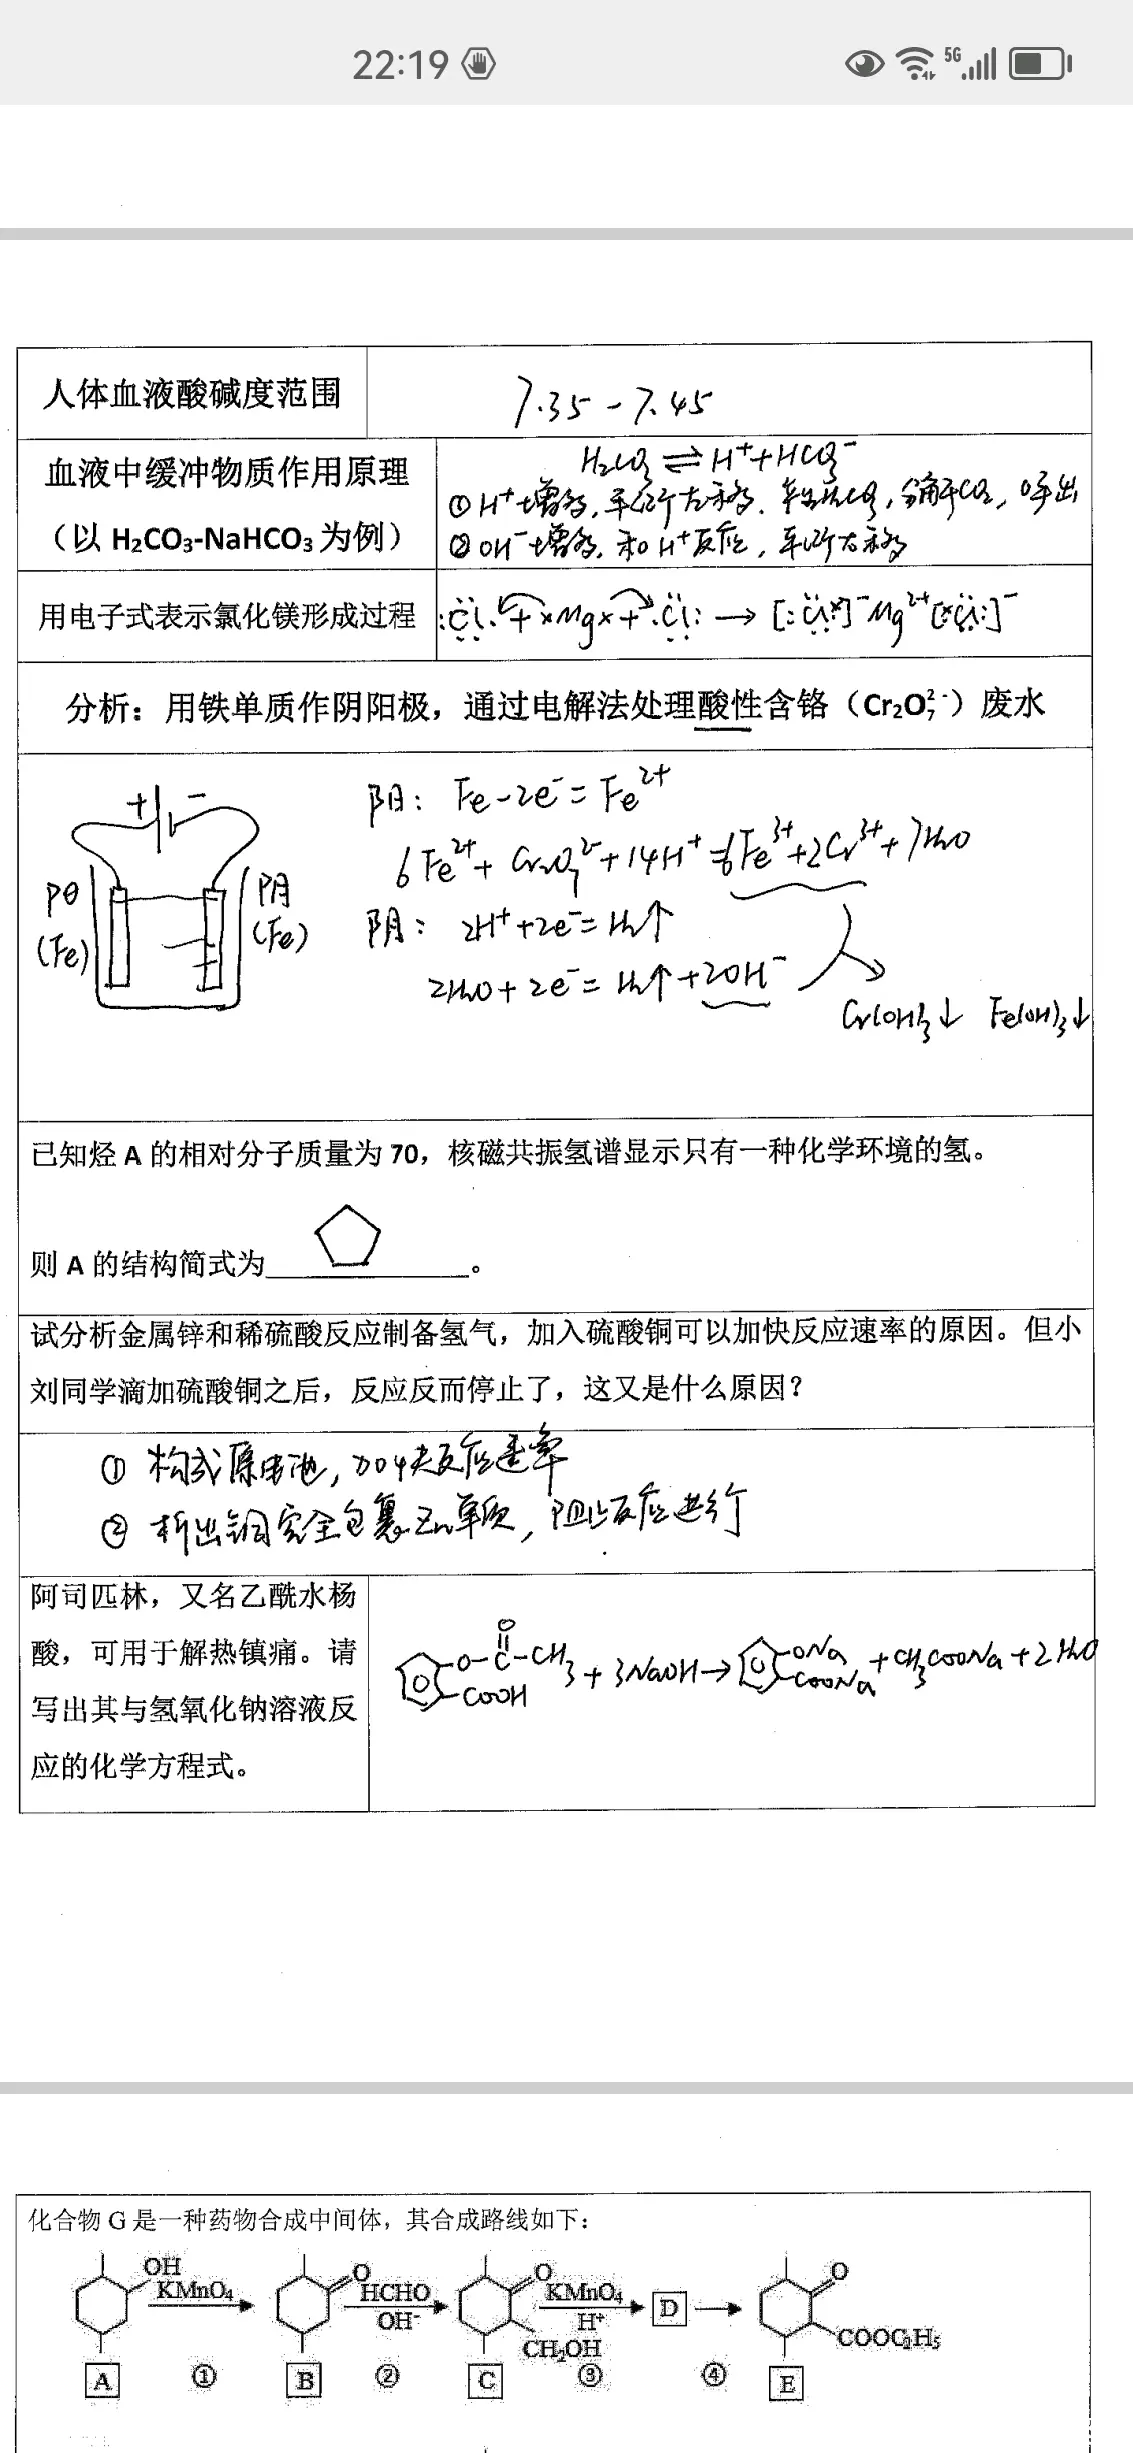 22:19 5G
人体血液酸碱度范围
7.35-7.45
血液中缓冲物质作用原理
（以 H₂CO₃-NaHCO₃ 为例）
H₂CO₃ ⇌ H⁺+HCO₃⁻
① H⁺增多, 平衡左移, 生成H₂CO₃, 分解CO₂, 呼出
② OH⁻增多, 和H⁺反应, 平衡右移
用电子式表示氯化镁形成过程
:C̈l·+×Mg×+·C̈l: → [:C̈l×]⁻Mg²⁺[×C̈l:]⁻
分析：用铁单质作阴阳极，通过电解法处理酸性含铬（Cr₂O₇²⁻）废水
+ -
阳
(Fe)
阴
(Fe)
阳: Fe-2e⁻=Fe²⁺
6Fe²⁺+Cr₂O₇²⁻+14H⁺=6Fe³⁺+2Cr³⁺+7H₂O
阴: 2H⁺+2e⁻=H₂↑
2H₂O+2e⁻=H₂↑+2OH⁻
Cr(OH)₃↓ Fe(OH)₃↓
已知烃 A 的相对分子质量为 70，核磁共振氢谱显示只有一种化学环境的氢。
则 A 的结构简式为________。
试分析金属锌和稀硫酸反应制备氢气，加入硫酸铜可以加快反应速率的原因。但小
刘同学滴加硫酸铜之后，反应反而停止了，这又是什么原因？
① 构成原电池, 加快反应速率
② 析出铜完全包裹Zn单质, 阻止反应进行
阿司匹林，又名乙酰水杨
酸，可用于解热镇痛。请
写出其与氢氧化钠溶液反
应的化学方程式。
O
-O-C-CH₃ + 3NaOH → -ONa + CH₃COONa + 2H₂O
-COOH -COONa
化合物 G 是一种药物合成中间体，其合成路线如下：
OH KMnO₄ O HCHO OH⁻ O CH₂OH KMnO₄ H⁺ D O COOC₂H₅
A ① B ② C ③ ④ E